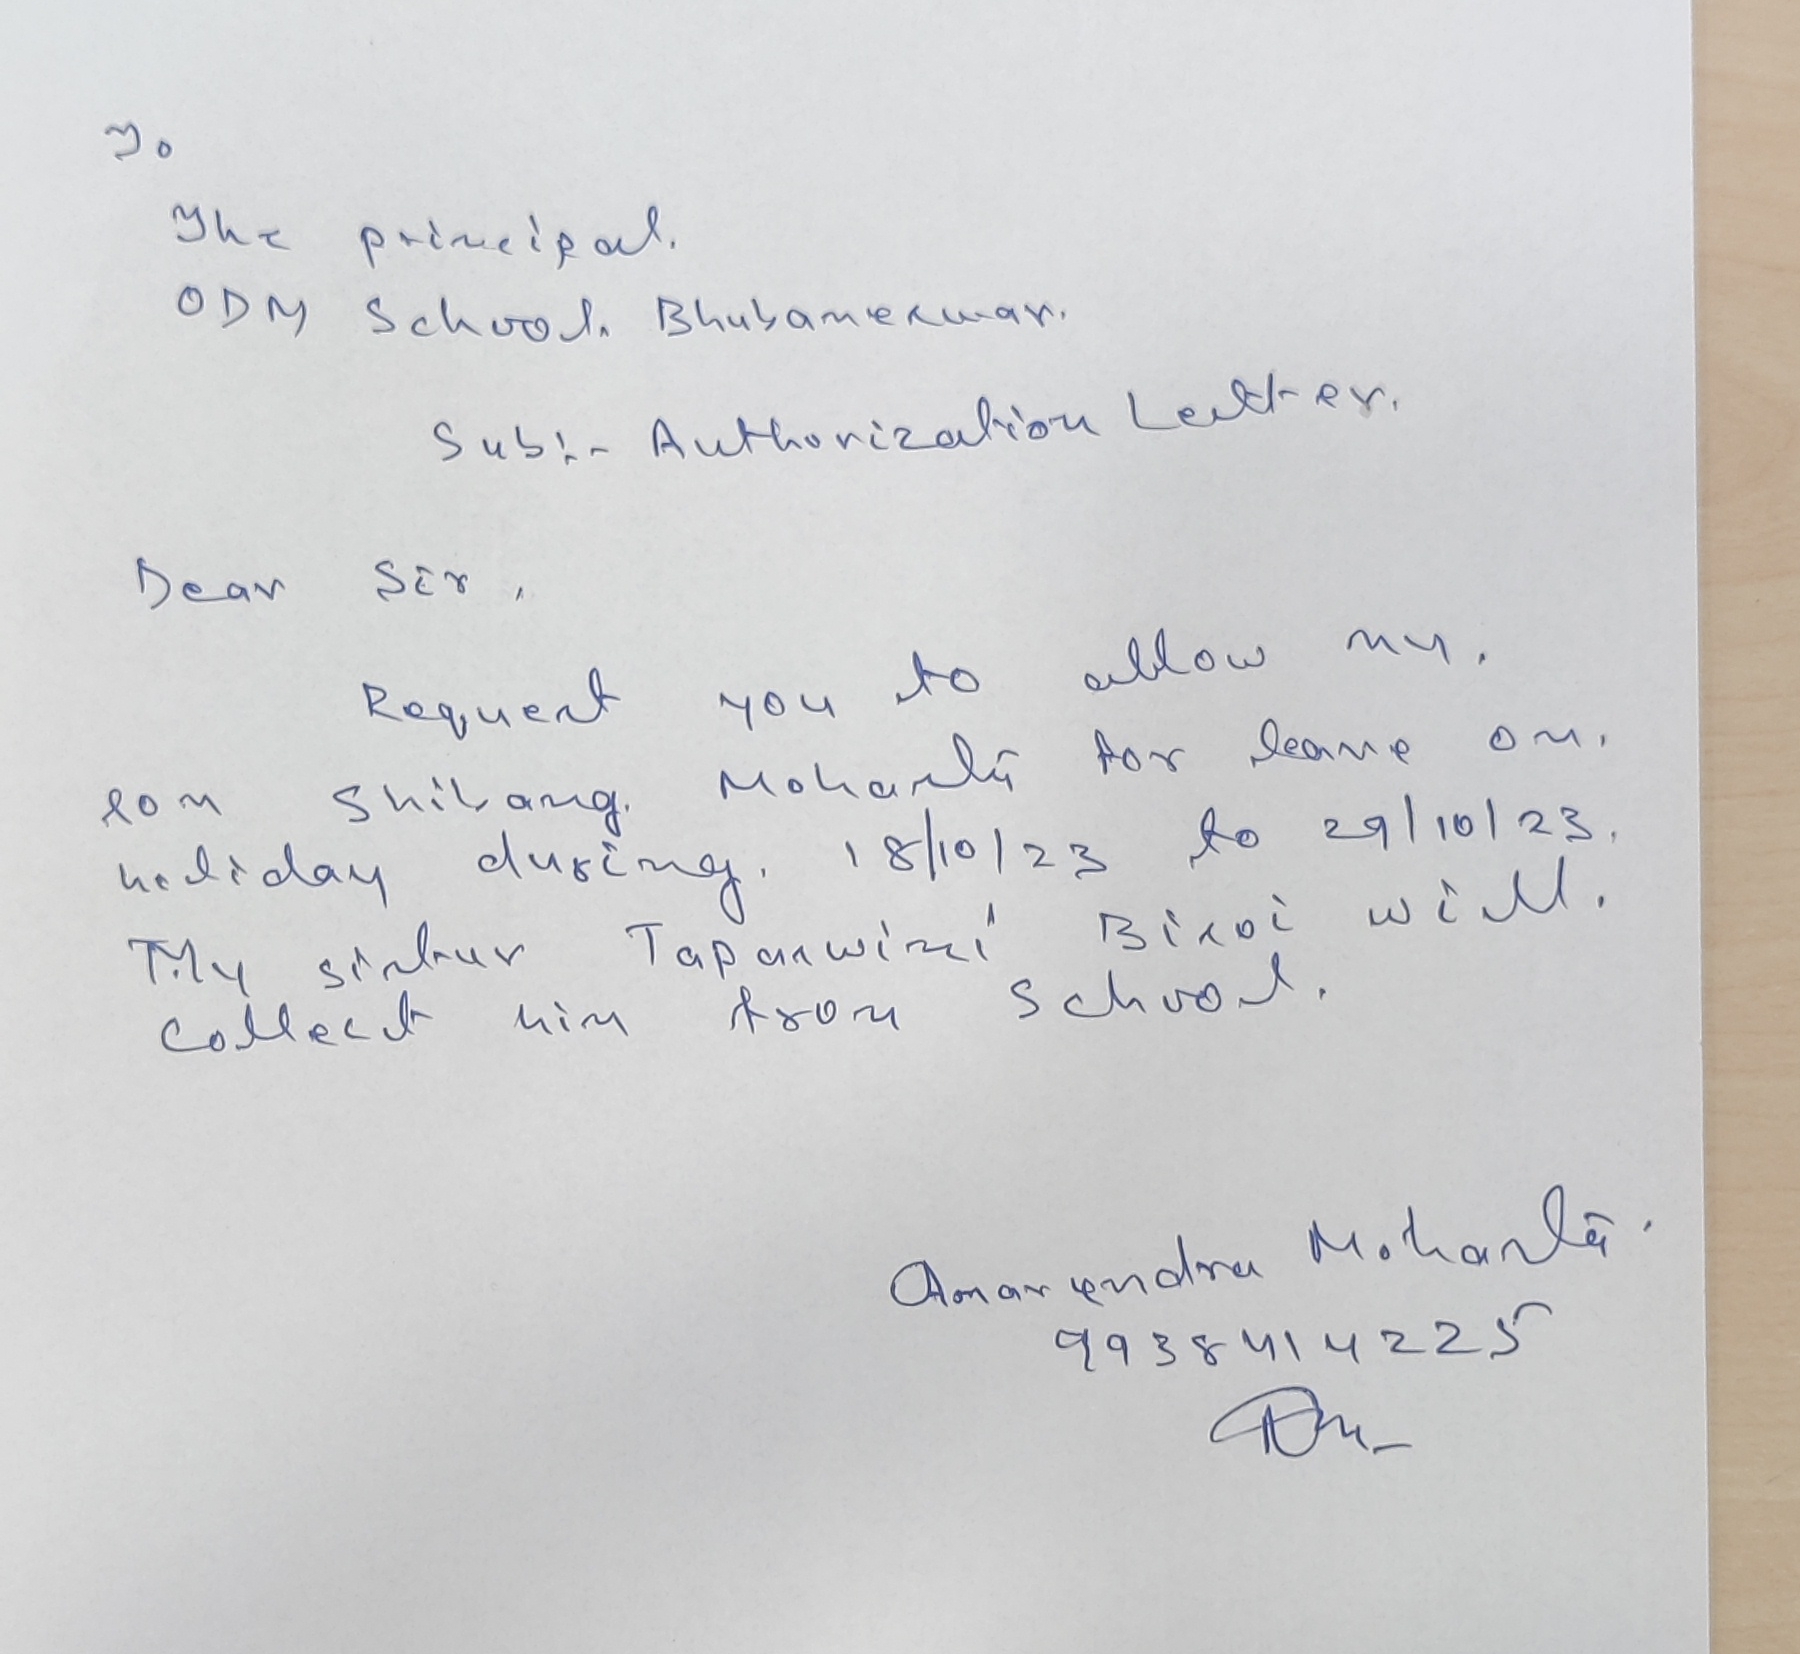 To
The principal.
ODM School. Bhubaneswar.
Sub:- Authorization Letter.
Dear Sir,
Request you to allow my.
son Shibang. Mohanty for leave on.
holiday during. 18/10/23 to 29/10/23.
My sister Tapaswini Bisoi will.
collect him from school.
Amarendra Mohanty.
9938414225